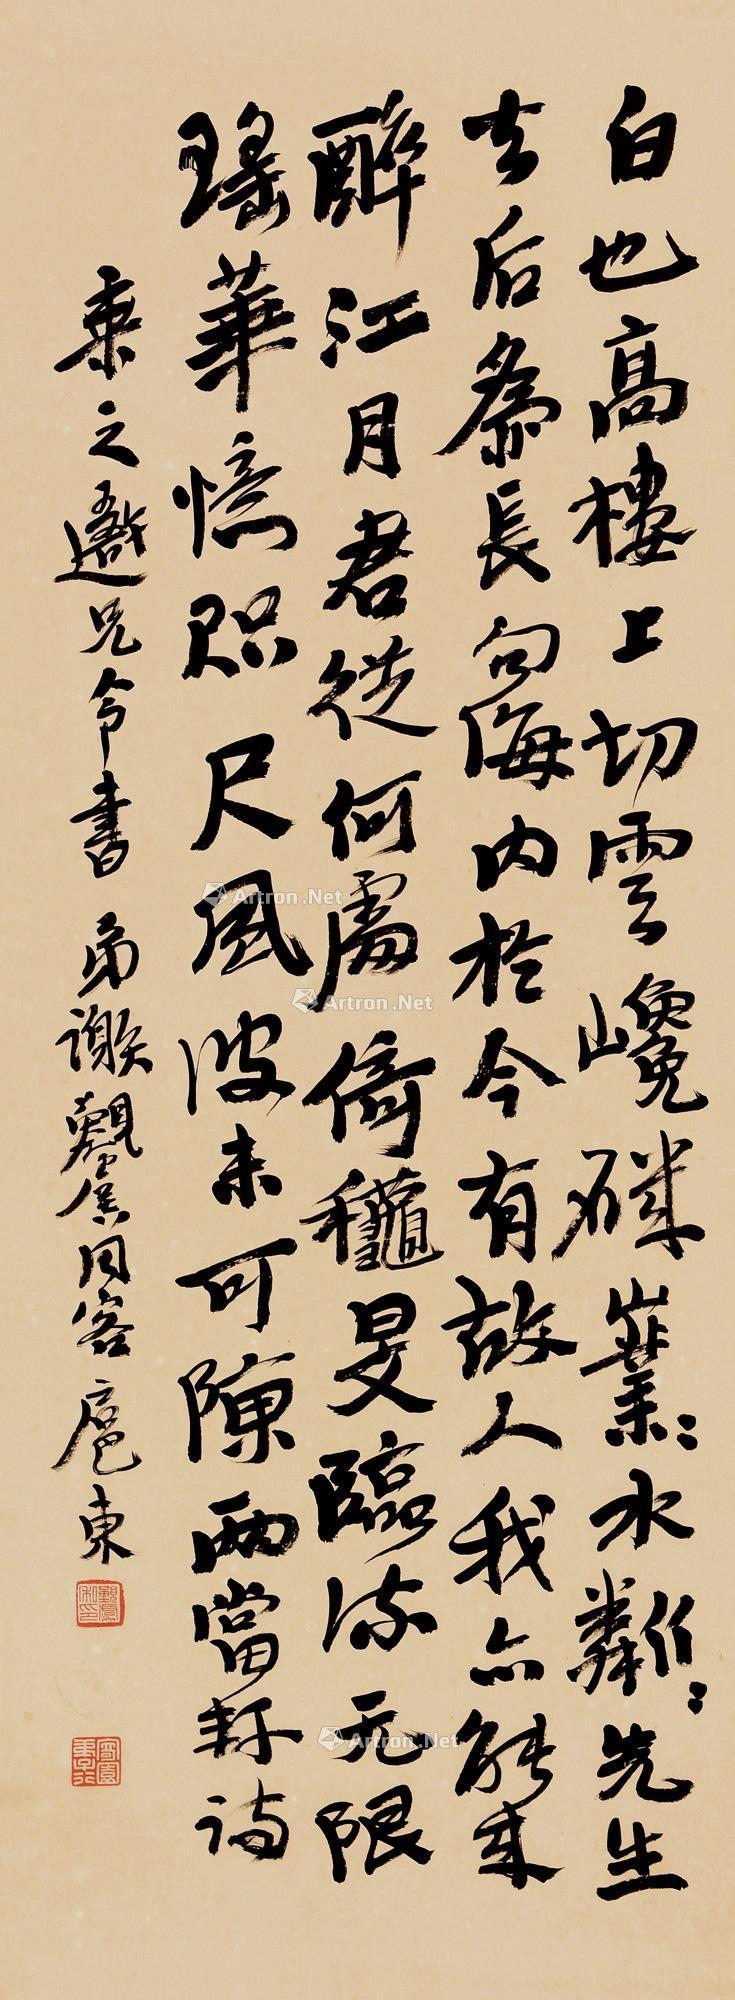 白也高樓上切雲巉磔嶪嶪水粼粼先生
去后条長句海内於今有故人我亦能来
醉江月君從何處倚穐旻臨流无限
瑤華憶咫尺風波未可陳兩當軒詩
秉之邀兄命書 弟謝覲虞同客扈東
Artron.Net
Artron.Net
Artron.Net